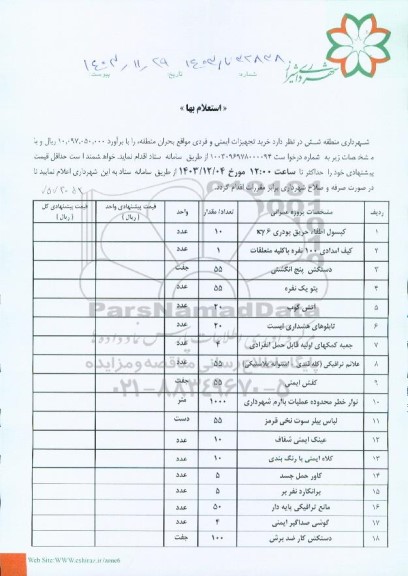 شهرداری شیراز
شماره ۱۴۰۳/ تاریخ ۱۴۰۳/۱۱/۲۹ پیوست
« استعلام بها »
شهرداری منطقه شش در نظر دارد خرید تجهیزات ایمنی و فردی مواقع بحران منطقه، را با برآورد ۱۰,۰۹۷,۰۵۰,۰۰۰ ریال و با
مشخصات زیر به شماره درخواست ۱۱۰۰۳۰۹۶۹۷۸۰۰۰۰۹۳ از طریق سامانه ستاد اقدام نماید. خواهشمند است حداقل قیمت
پیشنهادی خود را حداکثر تا ساعت ۱۲:۰۰ مورخ ۱۴۰۳/۱۲/۰۴ از طریق سامانه ستاد به این شهرداری اعلام نمایید تا
در صورت صرفه و صلاح شهرداری برابر مقررات اقدام گردد.
ردیف مشخصات پروژه عمرانی تعداد/ مقدار واحد قیمت پیشنهادی واحد (ریال) قیمت پیشنهادی کل (ریال)
۱ کپسول اطفاء حریق پودری ۶ ۱۰ عدد
۲ کیف امدادی ۱۰۰ نفره باکلیه متعلقات ۱ عدد
۳ دستکش پنج انگشتی ۵۵ جفت
۴ پتو یک نفره ۵۵ عدد
۵ آتش کوب ۲۰ عدد
۶ تابلوهای هشداری ایست ۲۰ عدد
۷ جعبه کمکهای اولیه قابل حمل انفرادی ۴ عدد
۸ علائم ترافیکی (کله قندی - استوانه پلاستیکی) ۵۵ عدد
۹ کفش ایمنی ۵۵ جفت
۱۰ نوار خطر محدوده عملیات باآرم شهرداری ۱۰۰۰ متر
۱۱ لباس بیلر سوت نخی قرمز ۵۵ دست
۱۲ عینک ایمنی شفاف ۱۰ عدد
۱۳ کلاه ایمنی با رنگ بندی ۱۰ عدد
۱۴ کاور حمل جسد ۵ عدد
۱۵ برانکارد نفر بر ۵ عدد
۱۶ مانع ترافیکی پایه دار ۵۰ عدد
۱۷ گوشی صداگیر ایمنی ۴ عدد
۱۸ دستکش کار ضد برش ۱۰۰ جفت
ParsNamadData
۰۲۱-۸۸۳۴۹۶۷۰-۵